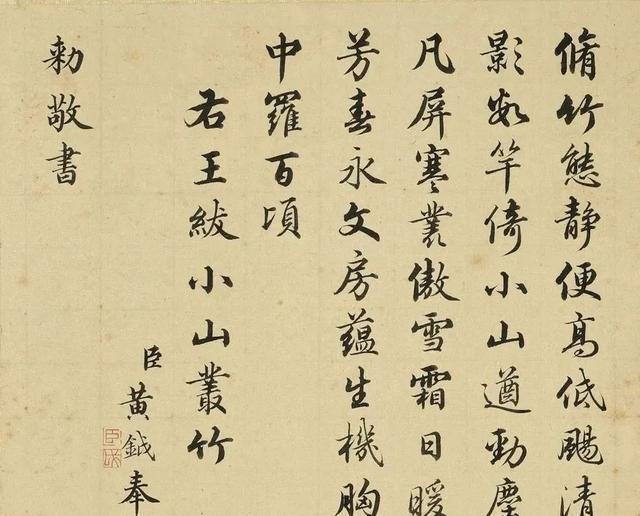 脩竹態靜便高低颺清
影數竿倚小山遒勁塵
凡屏寒叢傲雪霜日暖
芳春永文房蘊生機胸
中羅百頃
右王紱小山叢竹
臣黃鉞奉
勑敬書